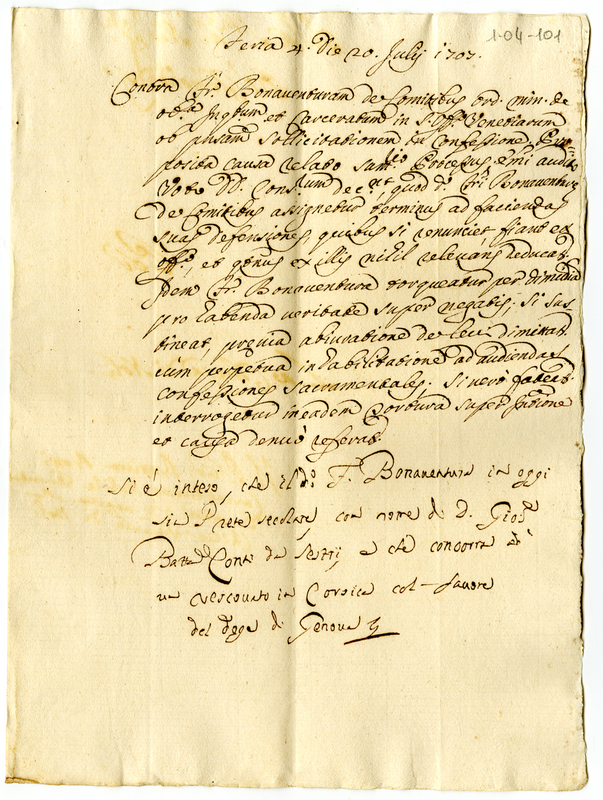 1-04-101
Feria 4. Die 20. Julij 1707.
Contra Fr. Bonaventuram de Comitibus ord. min. de
obs.a Inqtum et Carceratum in S. Off. Venetiarum
ob sollicitationem in Confessione Pro-
posita causa relato Sum.rio Processus emi audi
Votis DD. Cons.tum quod d.s Fr. Bonaventura
de Comitibus assignetur terminus ad faciendas
suas defensiones, quibus si renunciet, fiant ex
off.o, et ex illis nihil relevans
Idem Fr. Bonaventura torqueatur per dimidia
pro habenda veritate super negatis; Si sus
tineat, previa abiuratione de levi dimittat
cum perpetua inhabilitatione ad audiendas
Confessiones Sacramentales. Si vero fateat.
interrogetur in eadem tortura super
et causa denuo referat.
Si è inteso, che il d.o F. Bonaventura in oggi
sia Prete secolare, con nome di D. Gio.
Batta Conti da Sestri, e che concorra ad
un vescovato in Corsica col favore
del doge di Genova